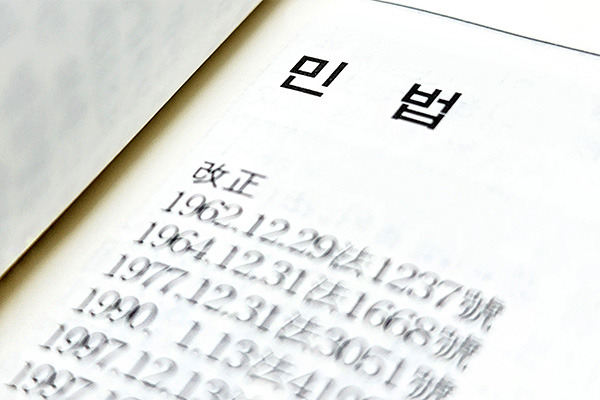 민 법
改正
1962.12.29法1237號
1964.12.31法1668號
1977.12.31法3051號
1990. 1.13法419
1997.12.13法
1997.